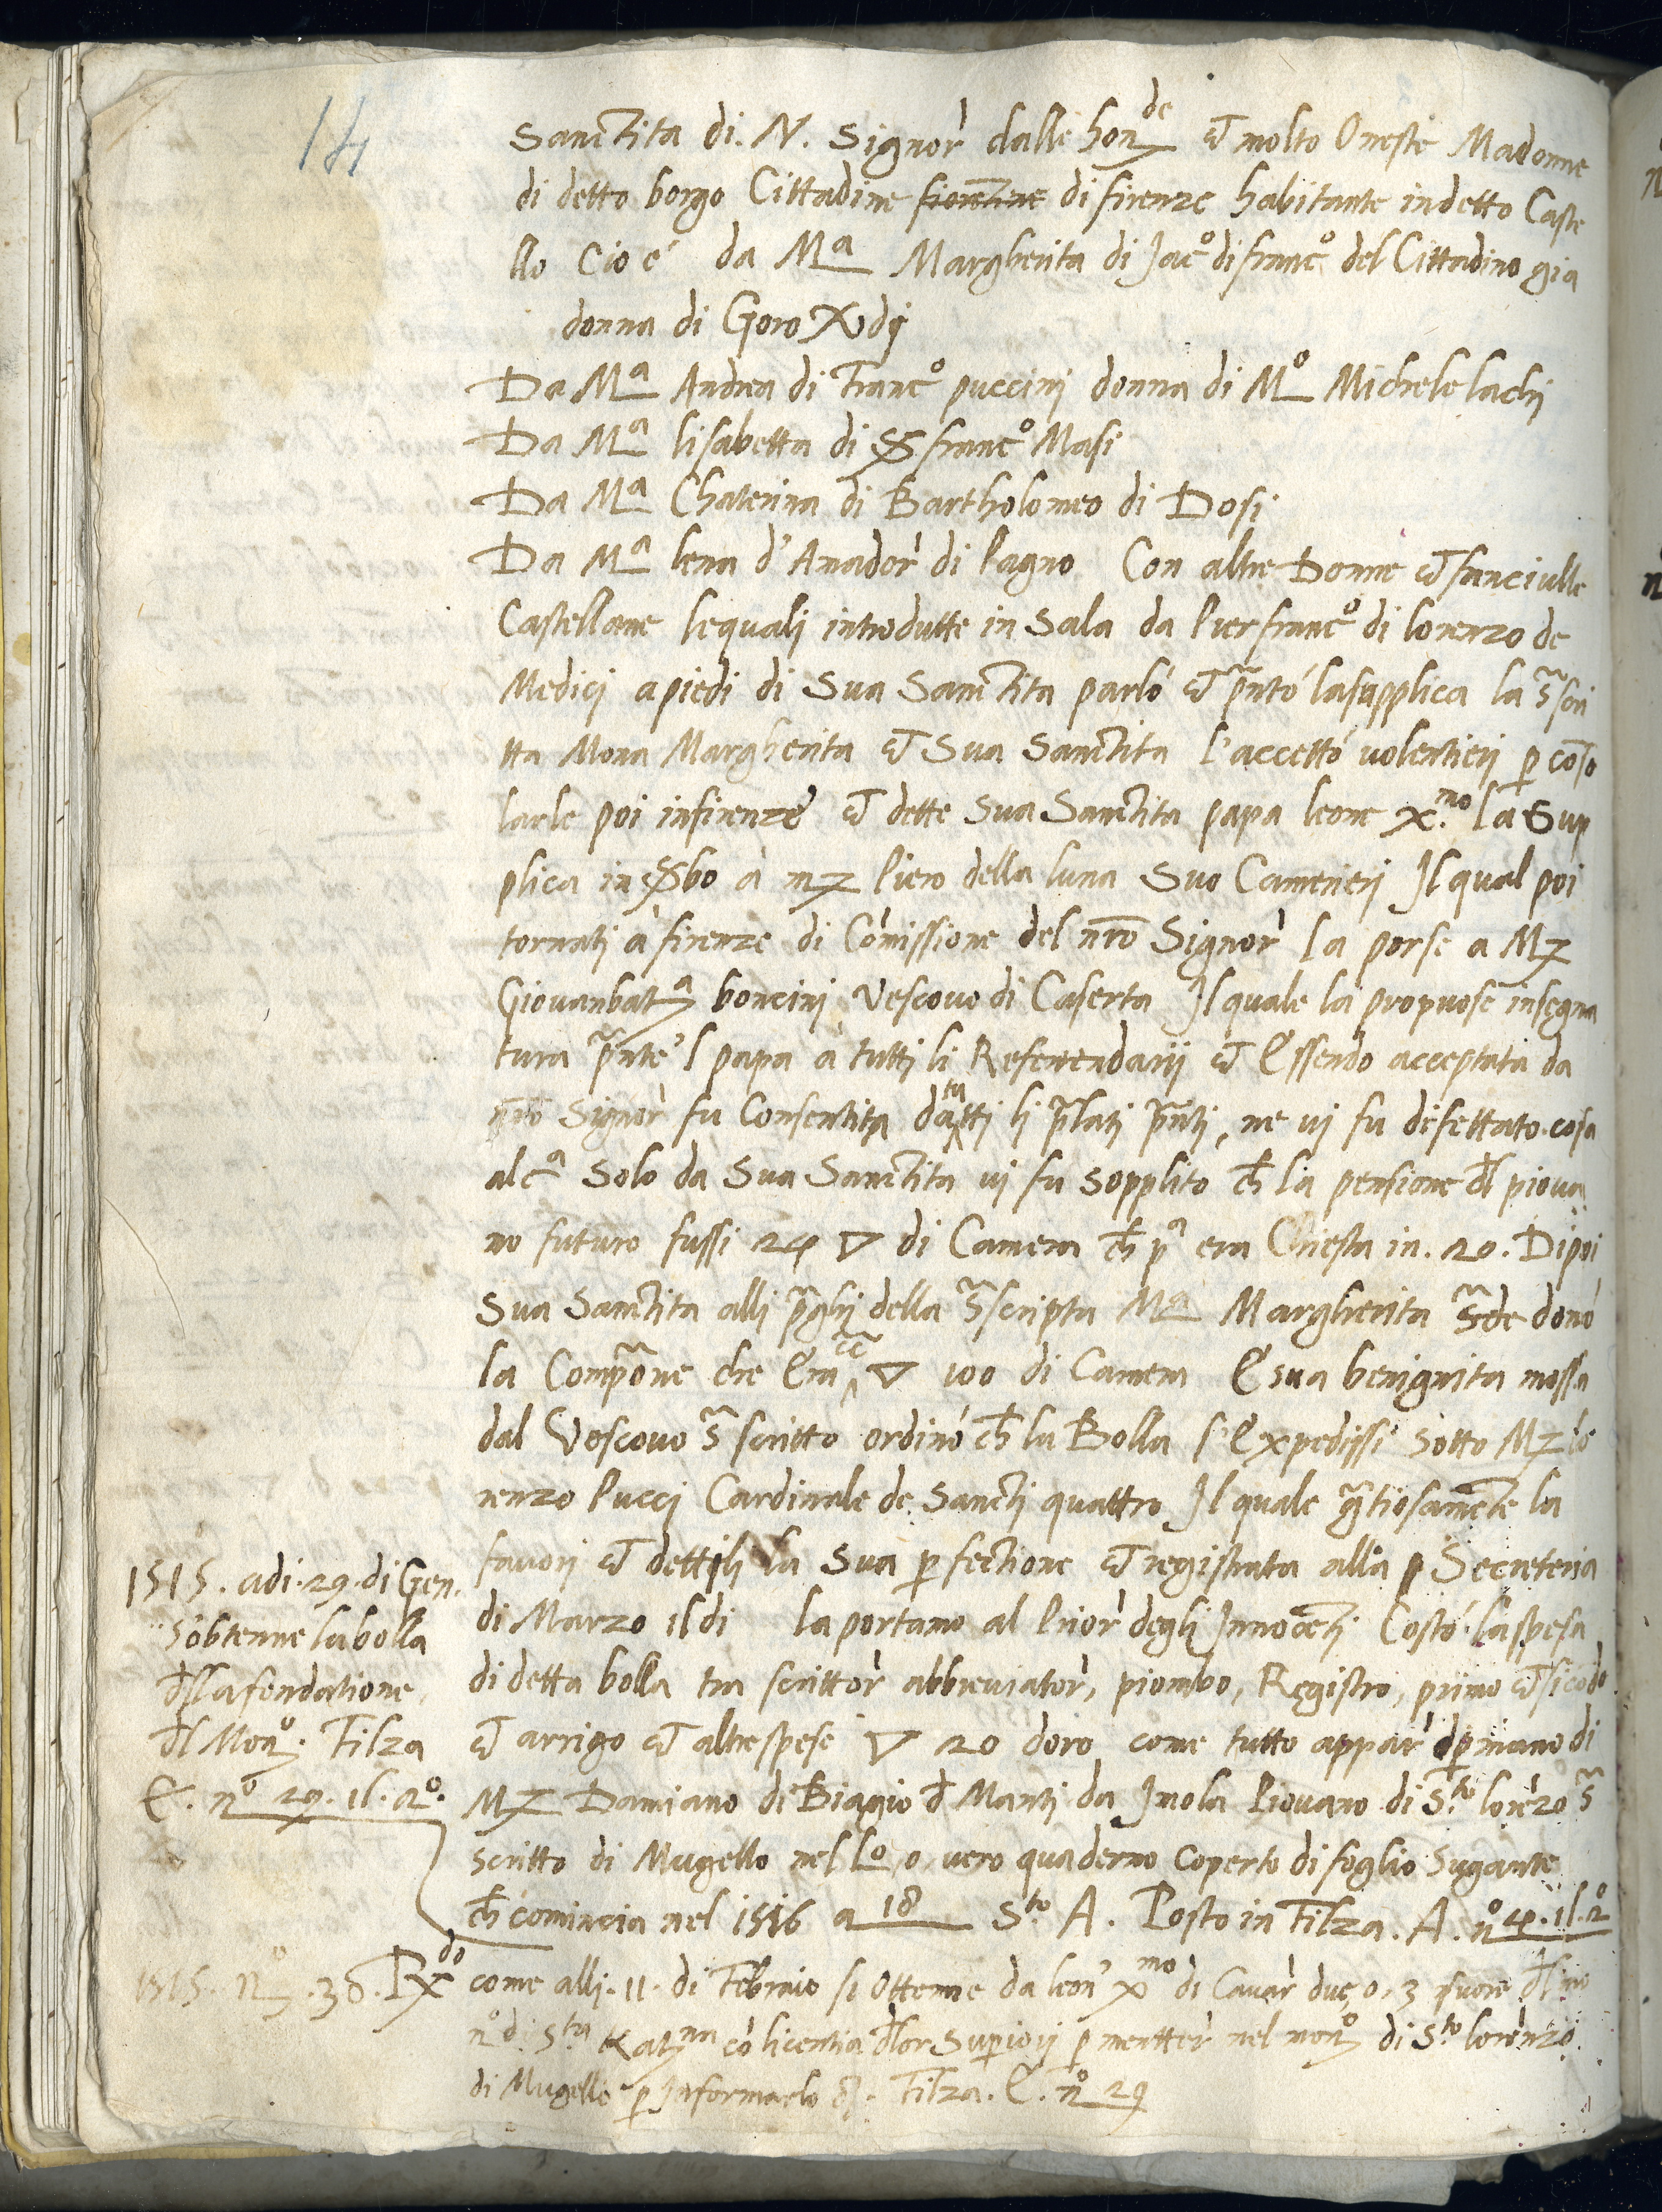 14
Sanctita di. N. Signor dalle hon.de et molto Oneste Madonne
di detto borgo Cittadine fiorentine di firenze habitante in detto Caste
llo Cio é da Ma Margherita di Jac.o di franc.o del Cittadino gia
donna di Goro
Da Ma Andrea di Franc.o puccini donna di Mo Michele lachi
Da Ma lisabetta di Ser franc.o Masi
Da Ma Chaterina di Bartholomeo di Dosi
Da Ma lena d'Amador di Pagno Con altre Donne et fanciulle
Castellane lequali introdutte in Sala da Pierfranc.o di lorenzo de
Medici a piedi di Sua Sanctita parló et pñtó lasupplica la s̃scri
tta Mona Margherita et Sua Sanctita l'accettó volentieri p conso
larle poi infirenze et dette Sua Sanctita papa leone x.mo la Sup
plica in Serbo à mz Piero della luna Suo Camerieri Il qual poi
tornati à firenze di Comissione del nro Signor la porse a Mz
Giovanbat.a boncini Vescovo di Caserta Il quale la propuose insegna
tura pñte 'l papa à tutti li Referendarii et Essendo acceptata da
nro Signor fu Consentita da tutti li p̃lati pñti, ne vi fu difettato cosa
alc.a Solo da Sua Sanctita vi fu sopplito ch la pensione dl piova
no futuro fussi 24 ▽ di Camera ch p.a era Chiesta in. 20. Dipoi
Sua Sanctita alli p̃ghi della s̃scripta Ma Margherita s̃de donó
la Comp̃one che Era ▽ 100 di Camera E sua benignita mossa
dal Vescovo s̃scritto ordinó ch la Bolla s'Expedissi sotto Mz lo
renzo Pucci Cardinale de Sancti quattro Il quale gr̃tiosamente la
favori et dettili la Sua pfectione et registrata alla p Secreteria
di Marzo il di la portamo al Prior degli Innocenti Costó laspesa
di detta bolla tra scrittor abbreviator, piombo, Registro, primo et sicodo
et arrigo et altrespese ▽ 20 doro come tutto appar p mano di
Mz Damiano di Biagio d Manti da Imola Piovano di S.to lorenzo s̃
scritto di Mugello nel Lo, o, vero quaderno Coperto di foglio Sugante
ch comincia nel 1516 a 18 S.to A. Posto in Filza. A. no 4. il. 2o
1515. adi. 29. di Gen.
s'obtenne la bolla
dlla fondatione
dl Mon.o. Filza
E. no 29. il. 2o.
1515. 38. come alli. 11. di Febraio si Ottenne da leon' x.mo di Cavar due, o, 3 suore dl mo
n.o di S.ta Kat.na cò licentia dlor Superiori p mentter nel mon.o di S.to lorenzo
di Mugello p Informarlo Filza. E. no 29